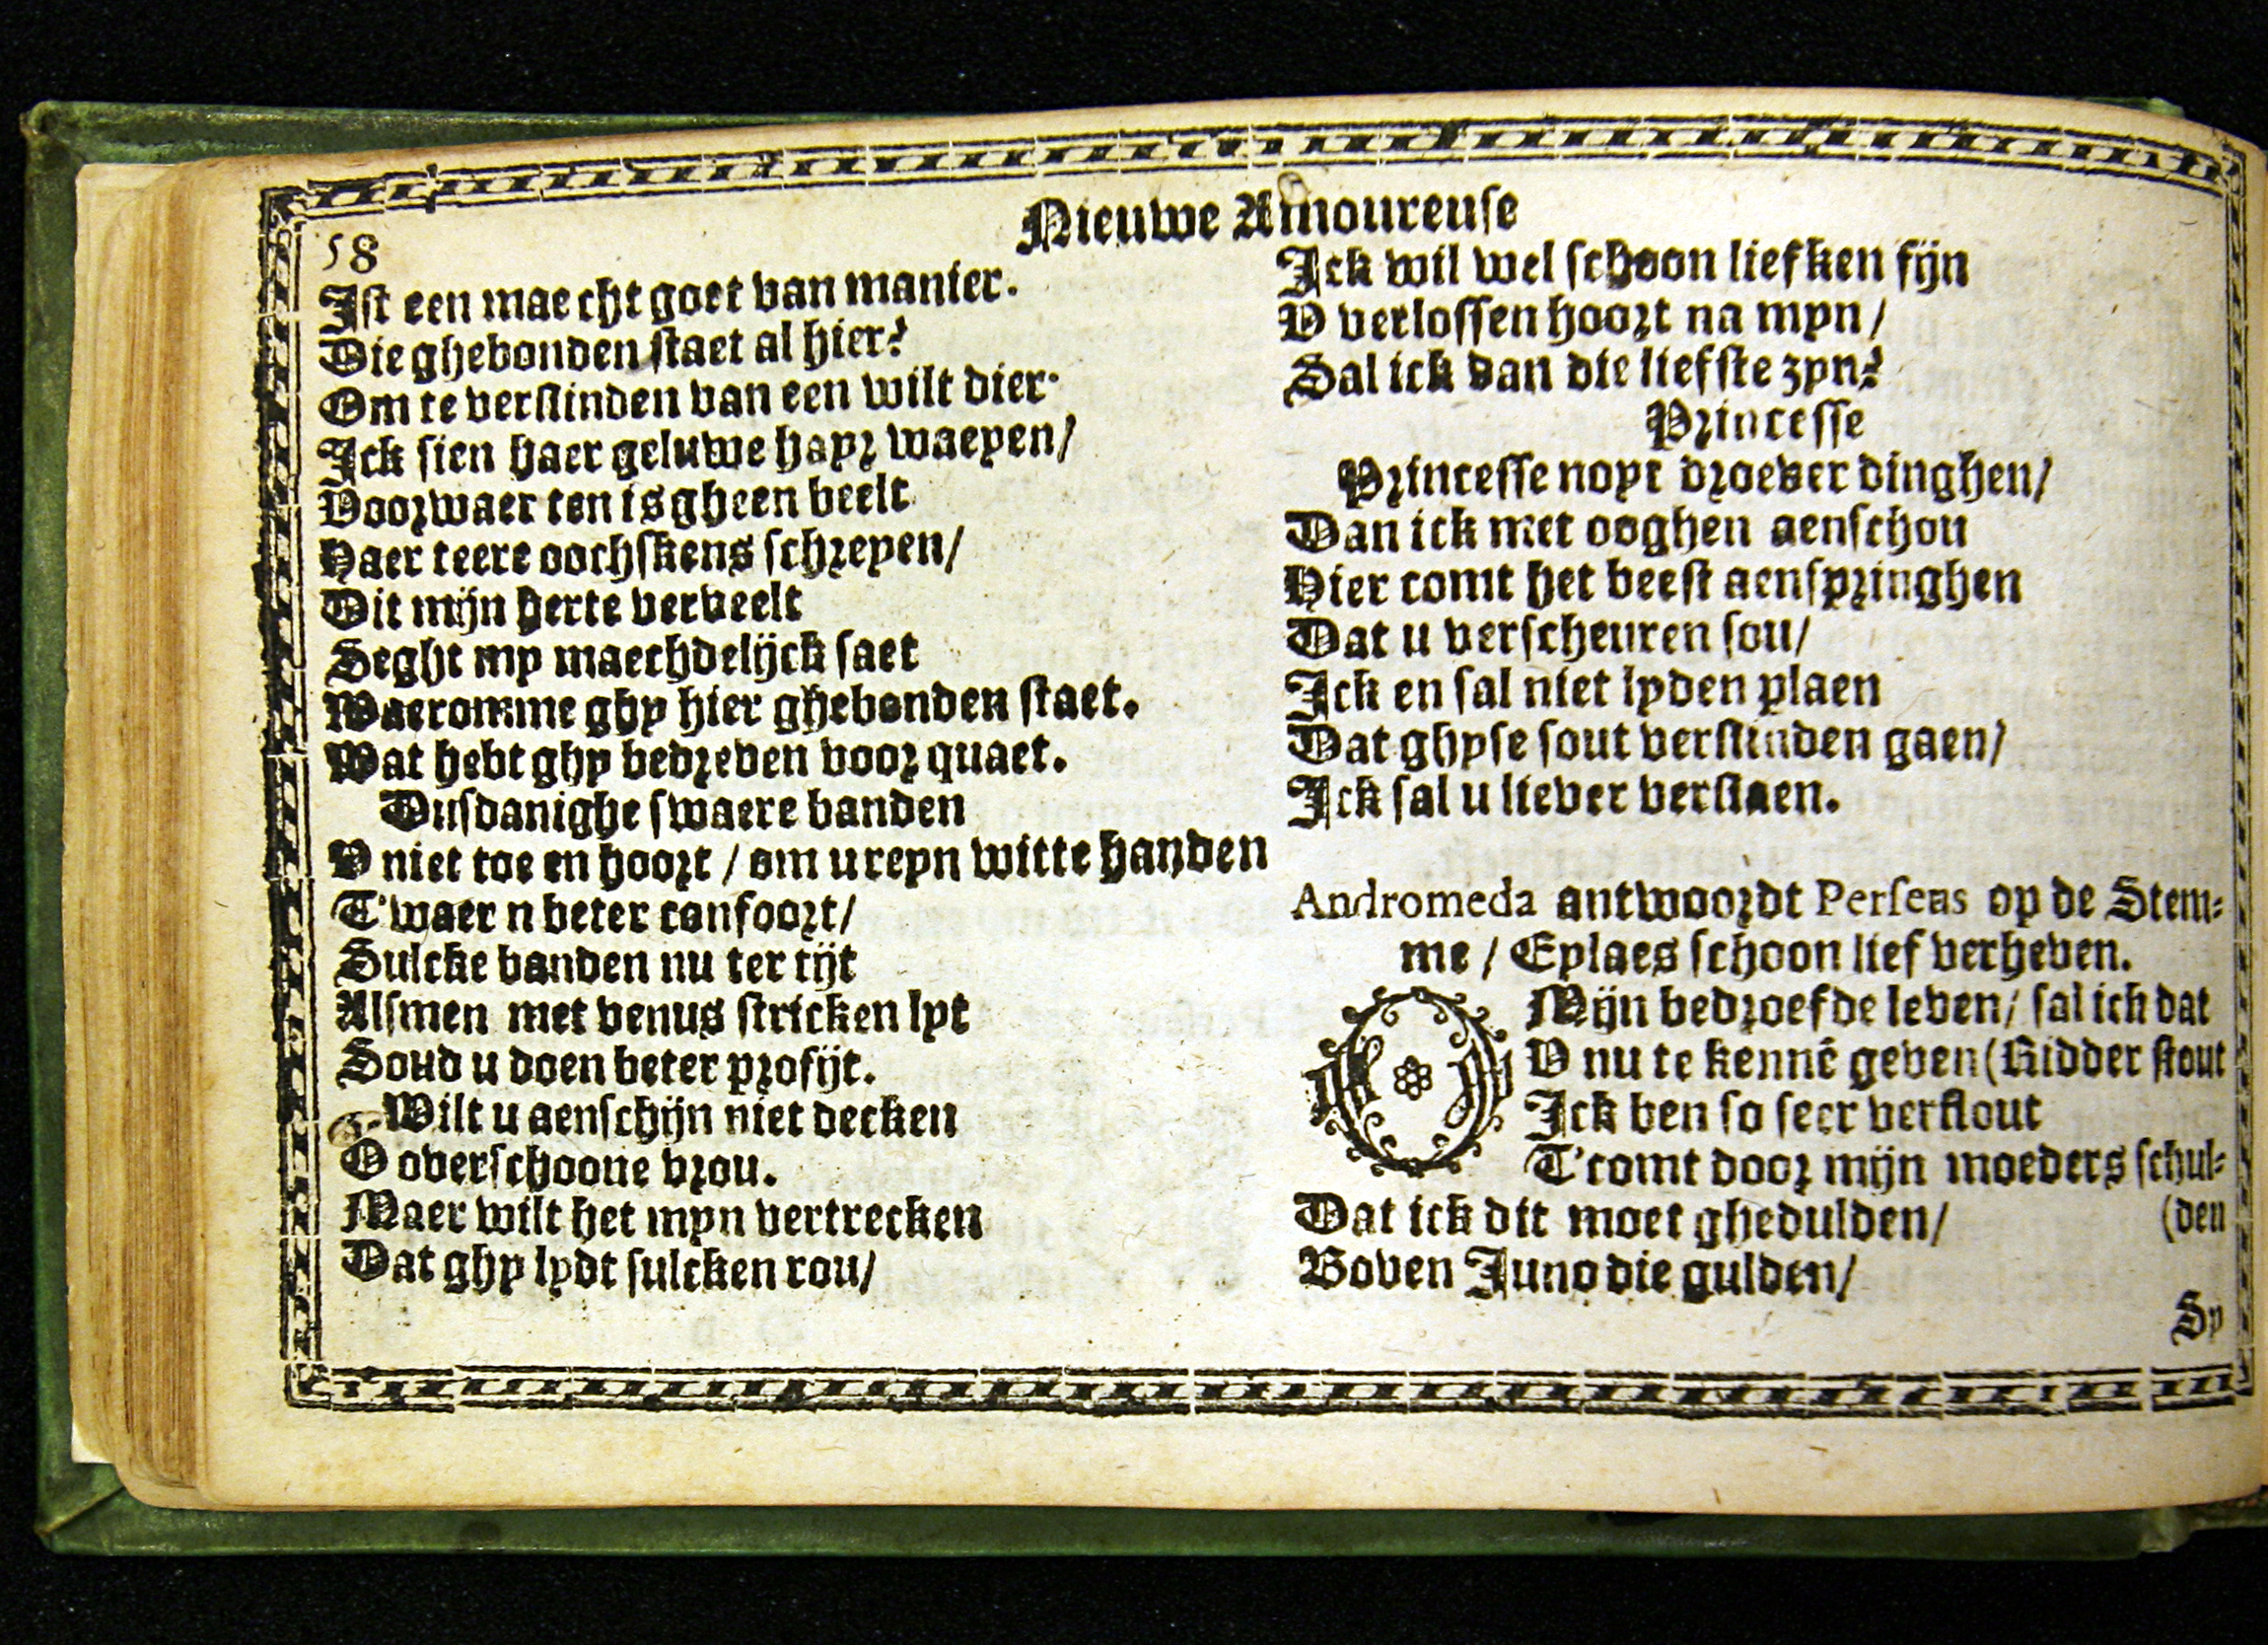 Nieuwe Amoureuse
58
Ist een maecht goet van manier.
Die ghebonden staet al hier?
Om te verslinden van een wilt dier.
Ick sien haer geluwe hayr waeyen/
Voorwaer ten is gheen beelt
Haer teere oochskens schreyen/
Dit mijn herte verveelt
Seght my maechdelijck saet
Waeromme ghy hier ghebonden staet.
Wat hebt ghy bedreven voor quaet.
Dusdanighe swaere banden
V niet toe en hoort / om u reyn witte handen
T'waer n beter confoort/
Sulcke banden nu ter tijt
Alsmen met venus stricken lyt
Soud u doen beter profijt.
Wilt u aenschijn niet decken
O overschoone vrou.
Maer wilt het myn vertrecken
Dat ghy lydt sulcken rou/
Ick wil wel schoon liefken fijn
V verlossen hoort na myn/
Sal ick dan die liefste zyn?
Princesse
Princesse noyt droever dinghen/
Dan ick met ooghen aenschou
Hier comt het beest aenspringhen
Dat u verscheuren sou/
Ick en sal niet lyden plaen
Dat ghyse sout verslinden gaen/
Ick sal u liever verslaen.
Andromeda antwoordt Perseus op de Stem-
me / Eylaes schoon lief verheven.
O Mijn bedroefde leven/ sal ick dat
V nu te kennē geven (Ridder stout
Ick ben so seer verflout
T'comt door mijn moeders schul-
Dat ick dit moet ghedulden/ (den
Boven Juno die gulden/
Sy